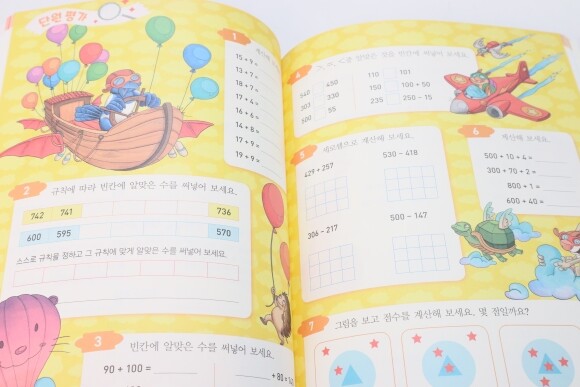 단원 평가
1
계산해
15 + 9 =
13 + 7 =
18 + 7 =
17 + 4 =
16 + 6 =
14 + 8 =
17 + 9 =
19 + 9 =
2 규칙에 따라 빈칸에 알맞은 수를 써넣어 보세요.
742 741 736
600 595 570
스스로 규칙을 정하고 그 규칙에 맞게 알맞은 수를 써넣어 보세요.
3 빈칸에 알맞은 수를 써넣어 보세요.
90 + 100 =
+ 80 =
4 >, <, =중 알맞은 것을 빈칸에 써넣어 보세요.
540 450 110 101
303 330 150 100 + 50
500 55 235 250 - 15
5 세로셈으로 계산해 보세요.
429 + 257 530 - 418
306 - 217 500 - 147
6 계산해 보세요.
500 + 10 + 4 =
300 + 70 + 2 =
800 + 1 =
600 + 40 =
7 그림을 보고 점수를 계산해 보세요. 몇 점일까요?